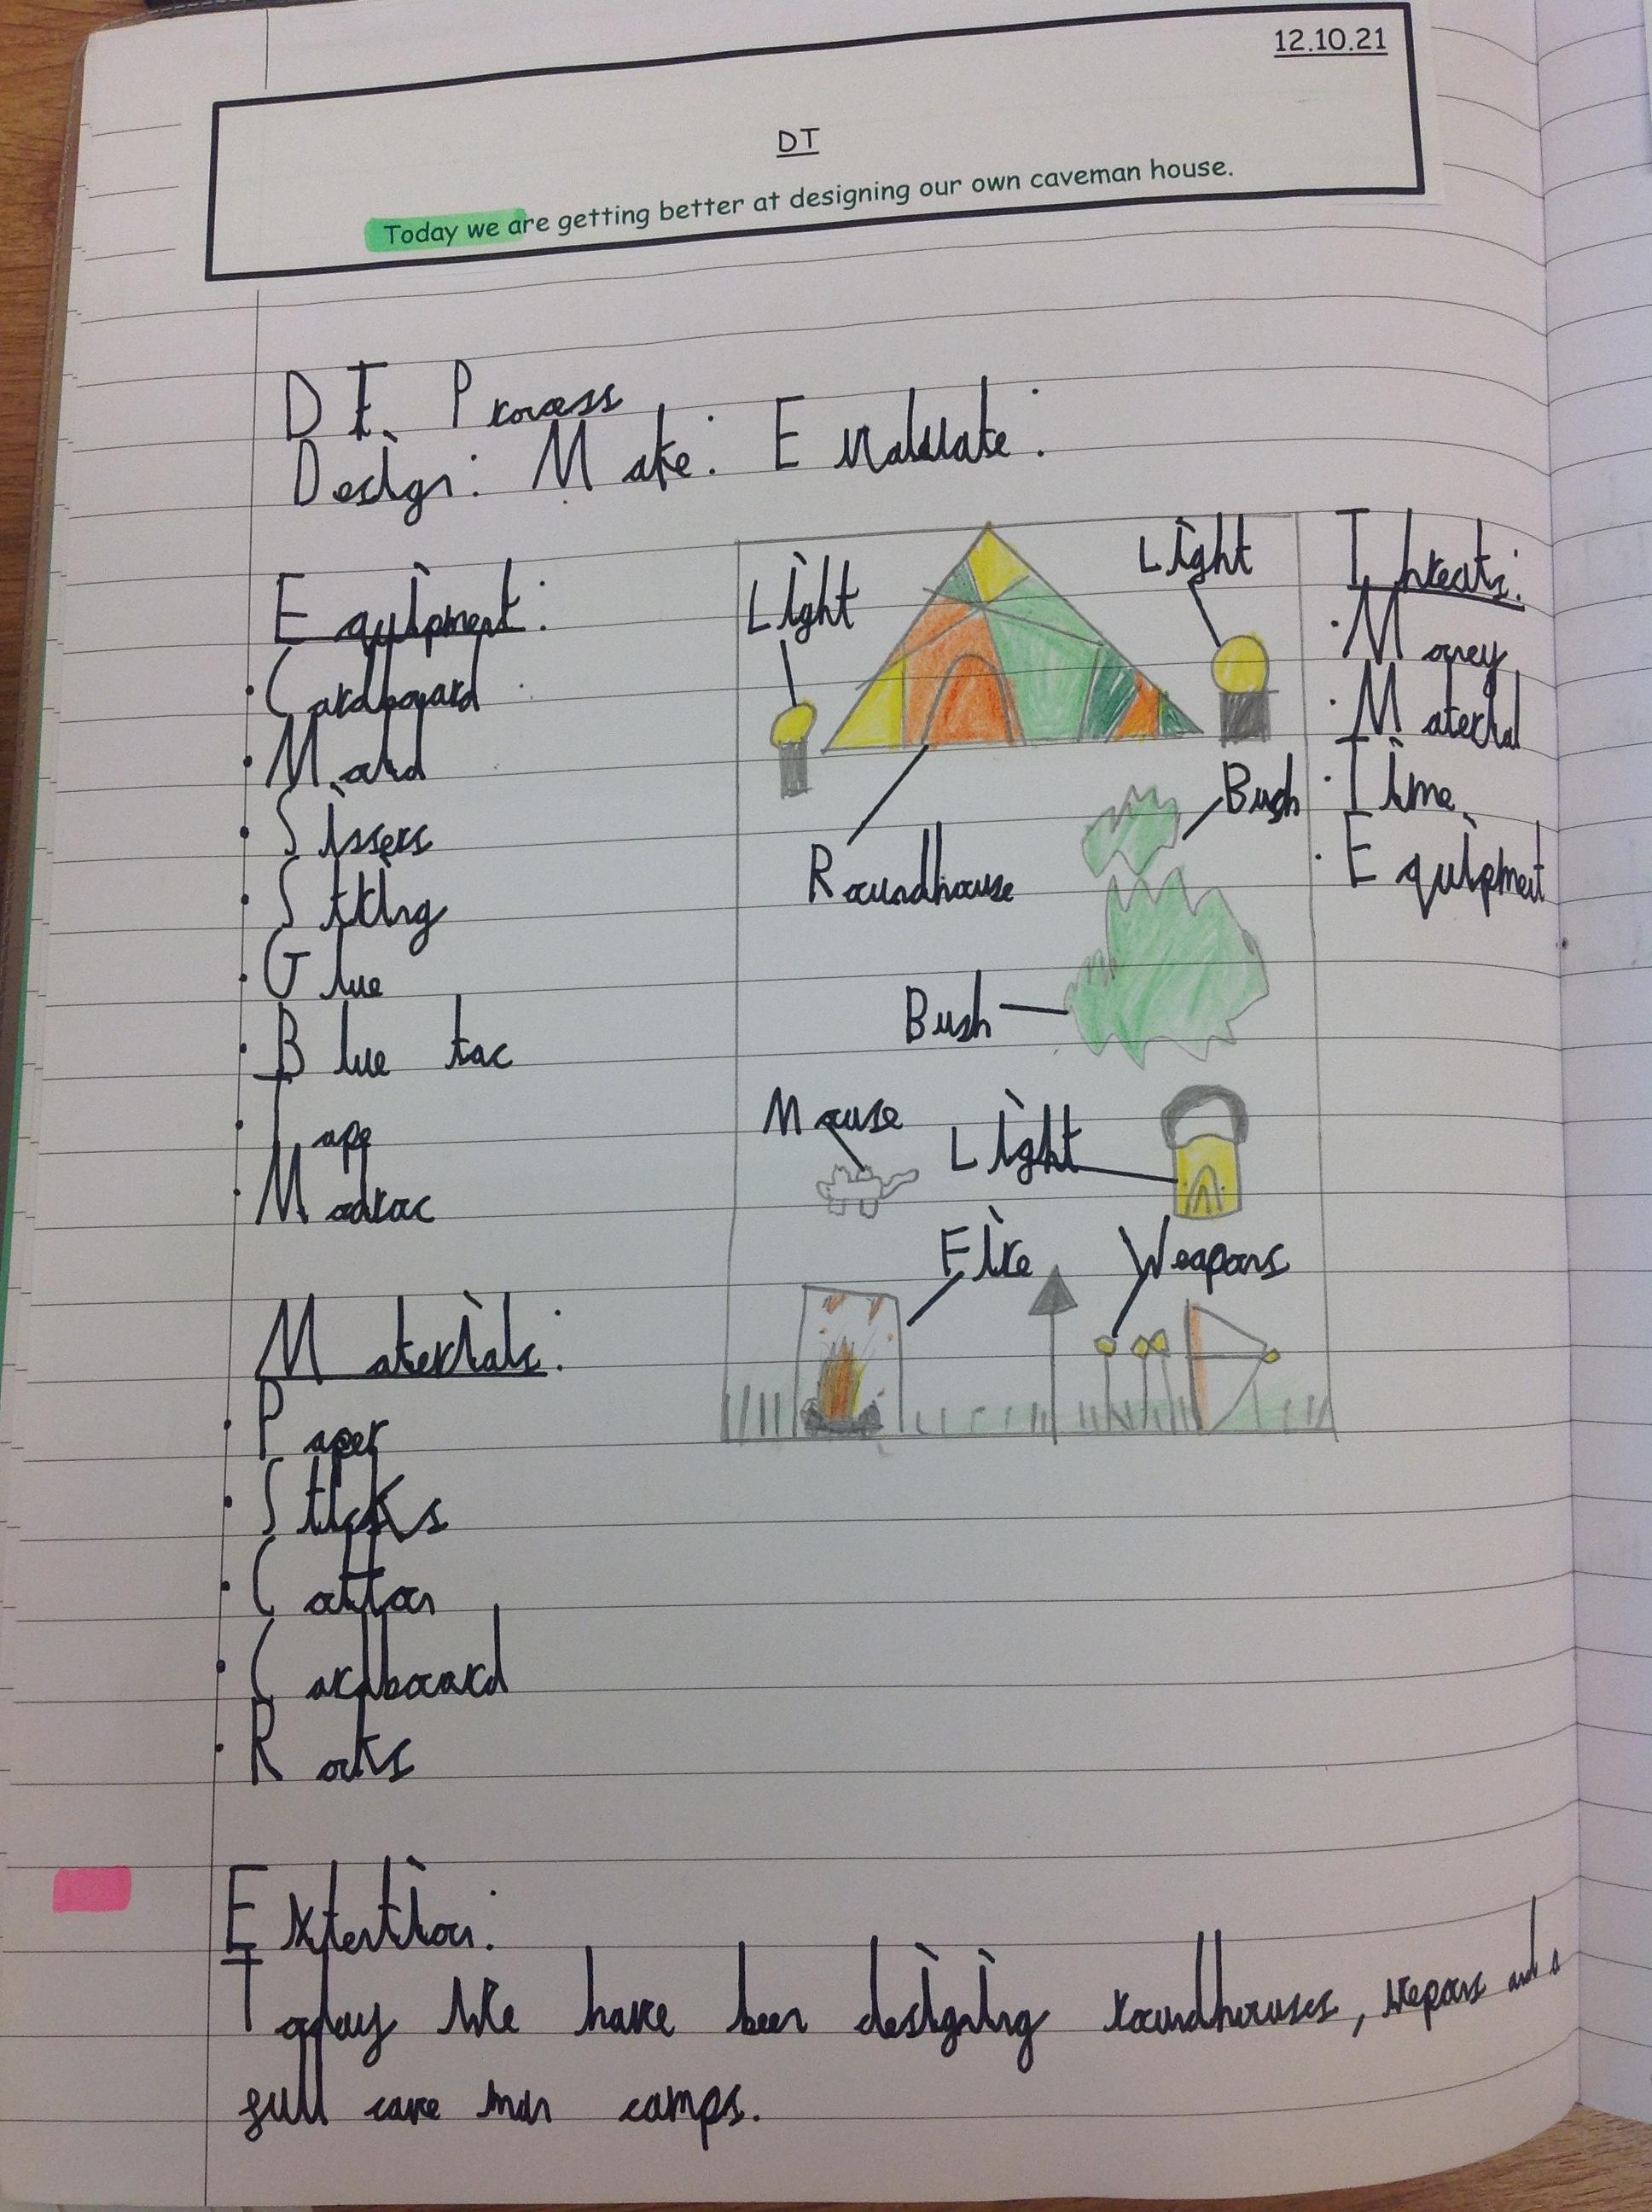 12.10.21
DT
Today we are getting better at designing our own caveman house.
DT Process
Design: Make: Evaluate:
Equipment:
• Cardboard
• Sissers
• String
• Glue
• Blue tac
• Tape
• Modrac
Materials:
• Paper
• Sticks
• Cotton
• Cardboard
• Rocks
Light
Light
Roundhouse
Bush
Bush
Mouse
Light
Fire
Weapons
Threats:
• Money
• Material
• Time
• Equipment
Extention:
Today We have been designing roundhouses, wepons and a
full cave man camps.